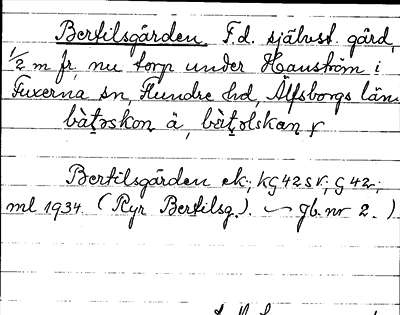 Bertilsgården F.d. självst. gård,
1/2 m fr, nu torp under Hanström i
Fuxerna sn, Flundre hd, Älfsborgs län.
bät̤əskon ä, bät̤olskan
Bertilsgården ek; KG42SV; G42v;
ml 1934. (Ryr Bertilsg.). gb. nr 2.)